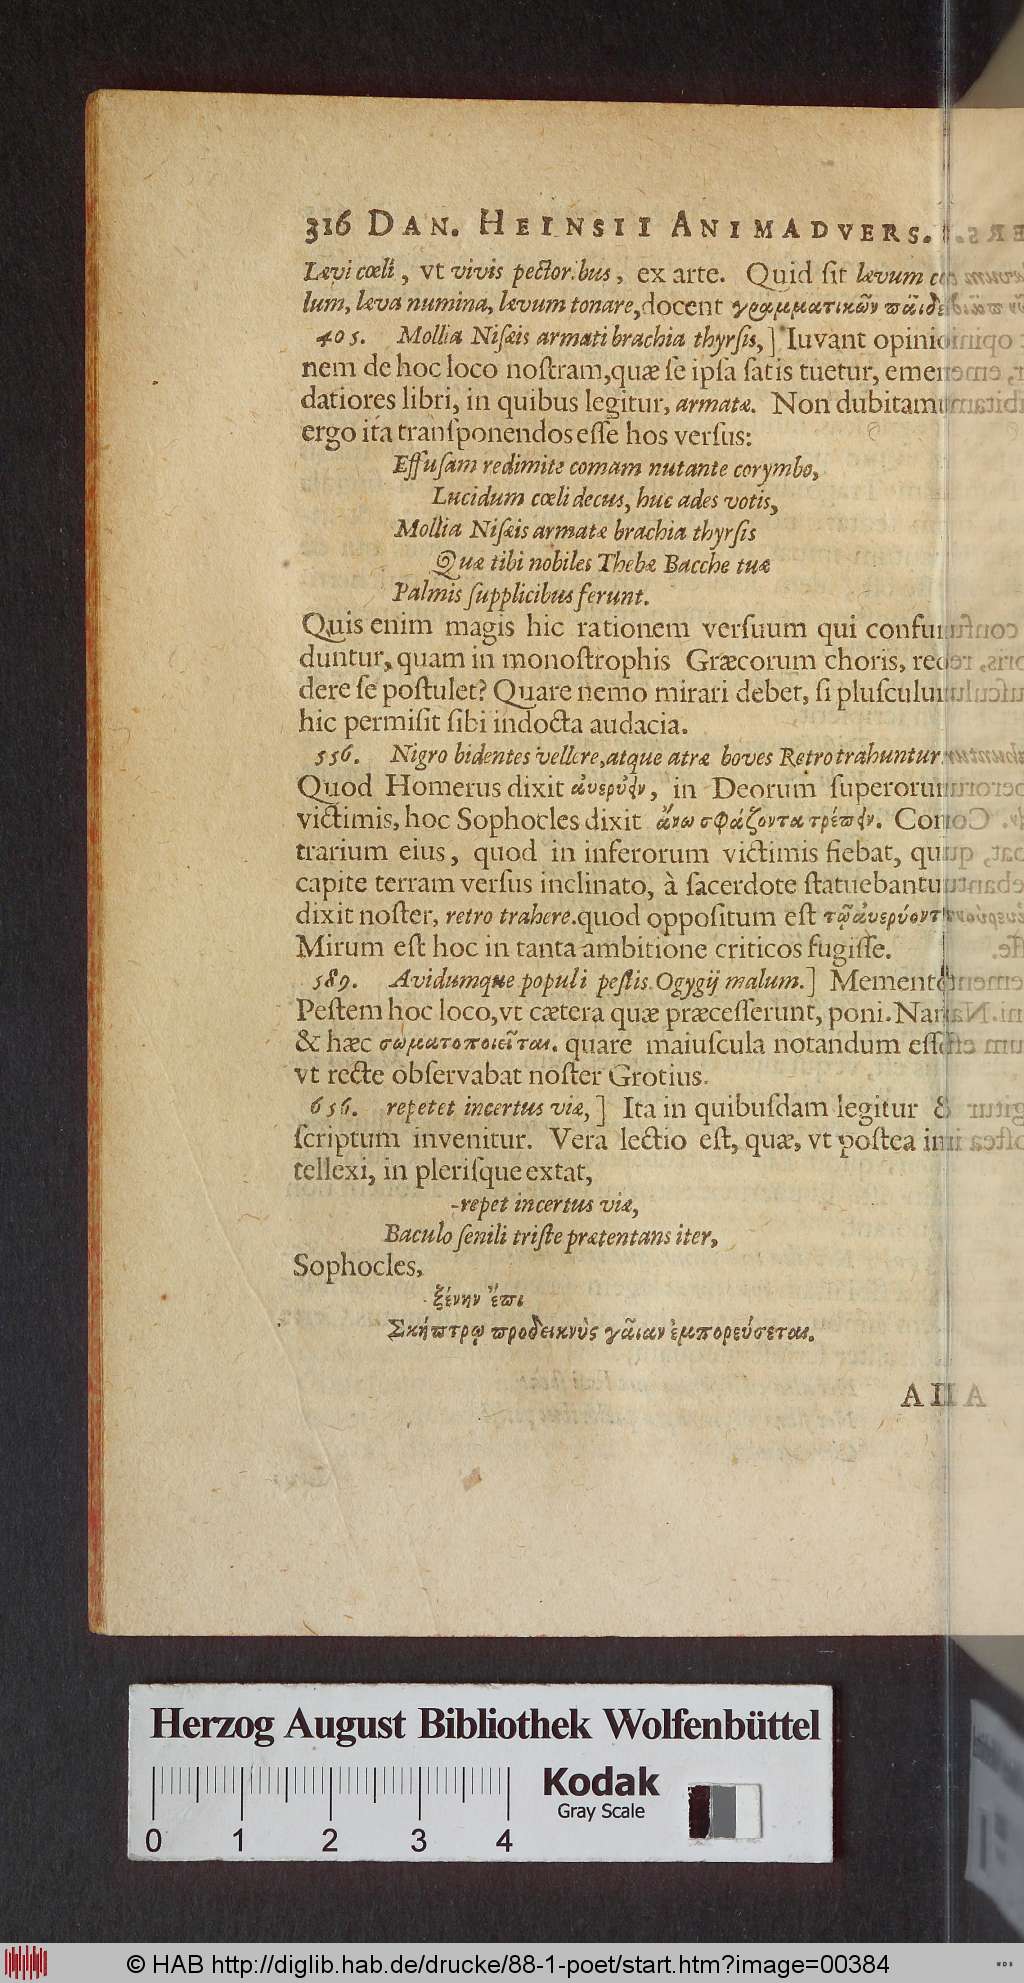 316 DAN. HEINSII ANIMADVERS.
Lævi cœli, vt vivis pectoribus, ex arte. Quid sit lævum cœ-
lum, læva numina, lævum tonare, docent γραμματικῶν παῖδες
405. Mollia Nisæis armati brachia thyrsis,] Iuvant opinio-
nem de hoc loco nostram, quæ se ipsa satis tuetur, emen-
datiores libri, in quibus legitur, armatæ. Non dubitamus
ergo ita transponendos esse hos versus:
Effusam redimite comam nutante corymbo,
Lucidum cœli decus, huc ades votis,
Mollia Nisæis armatæ brachia thyrsis
Quæ tibi nobiles Thebæ Bacche tuæ
Palmis supplicibus ferunt.
Quis enim magis hic rationem versuum qui confun-
duntur, quam in monostrophis Græcorum choris, red-
dere se postulet? Quare nemo mirari debet, si plusculum
hic permisit sibi indocta audacia.
556. Nigro bidentes vellere, atque atræ boves Retro trahuntur
Quod Homerus dixit ἀυερύειν, in Deorum superorum
victimis, hoc Sophocles dixit ἄνω σφάζοντα τρέπειν. Con-
trarium eius, quod in inferorum victimis fiebat, qu
capite terram versus inclinato, à sacerdote statuebantur
dixit noster, retro trahere. quod oppositum est τῷ ἀυερύοντ
Mirum est hoc in tanta ambitione criticos fugisse.
589. Avidumque populi pestis Ogygij malum.] Memento
Pestem hoc loco, vt cætera quæ præcesserunt, poni. Nam
& hæc σωματοποιεῖται. quare maiuscula notandum esse
vt recte observabat noster Grotius.
656. repetet incertus viæ,] Ita in quibusdam legitur &
scriptum invenitur. Vera lectio est, quæ, vt postea in-
tellexi, in plerisque extat,
-repet incertus viæ,
Baculo senili triste prætentans iter,
Sophocles,
ξένην ἔπι
Σκήπτρῳ προδεικνὺς γαῖαν ἐμπορεύσεται.
Herzog August Bibliothek Wolfenbüttel
0 1 2 3 4
Kodak
Gray Scale
© HAB http://diglib.hab.de/drucke/88-1-poet/start.htm?image=00384